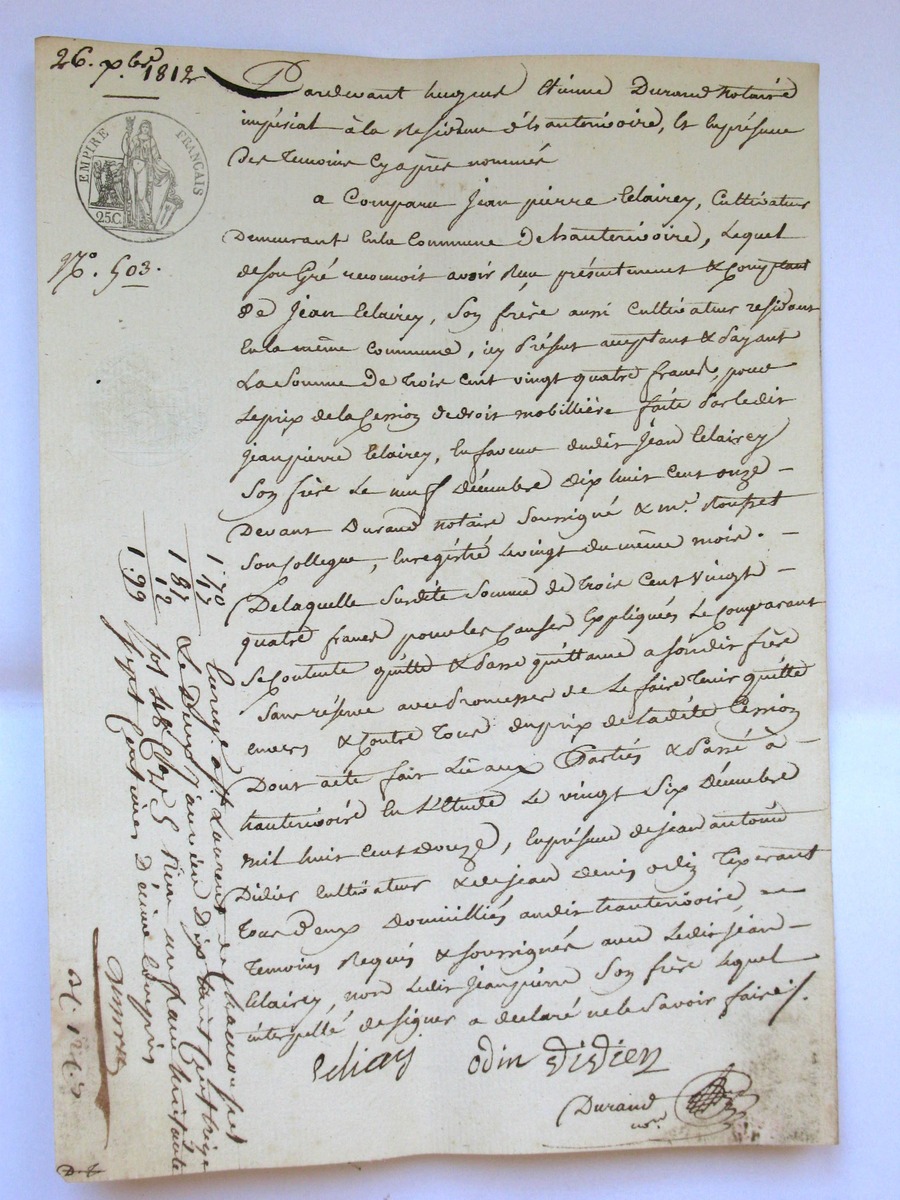 26. xbre 1812
EMPIRE FRANÇAIS
25.C.
N.o 503.
Pardevant hugues Etienne Durand Notaire
impérial à la Residence d'hauterivoire, & En présence
des temoins Cy après nommés
a Comparu Jean pierre Clairey, Cultivateur
Demeurant En la Commune D'hauterivoire, Lequel
de son Gré reconnoit avoir Reçu présentement & Comptant
De Jean Clairey, Son frère aussi Cultivateur residant
En la même Commune, icy Présent acceptant & Payant
La Somme De trois Cent vingt quatre francs, pour
Le prix de la Cession de droit mobillière faite Par ledit
Jean pierre Clairey, En faveur dudit Jean Clairey
Son frère Le neuf décembre Dix huit Cent onze -
Devant Durand notaire Soussigné & me
Son Collegue, Enregistré Le vingt du même mois. -
De laquelle Susdite Somme de trois Cent Vingt -
quatre francs pour les Causes Expliqués Le Comparant
Se Contente quitte & Passe quittance a Son dit frère
Sans réserve avec Promesse de Le faire tenir quitte
envers & Contre tous du prix de La dite Cession
Dont acte fait Lu aux Parties & Passé à -
hauterivoire En L'Etude Le vingt Six Décembre
mil huit Cent Douze, En présence de Jean antoine
Didier Cultivateur & de Jean denis odin
tous Deux Domicilliés audit hauterivoire, -
temoins Requis & soussignés avec Ledit Jean -
Clairey, non Ledit Jean pierre Son frère Lequel
interpellé de signer a déclaré ne le Savoir faire /.
odin Didier
Durand
nre
1:70
17
1 87
12
1:99
Le Deux Janvier Dix huit Cent treize
Centimes Décime Compris